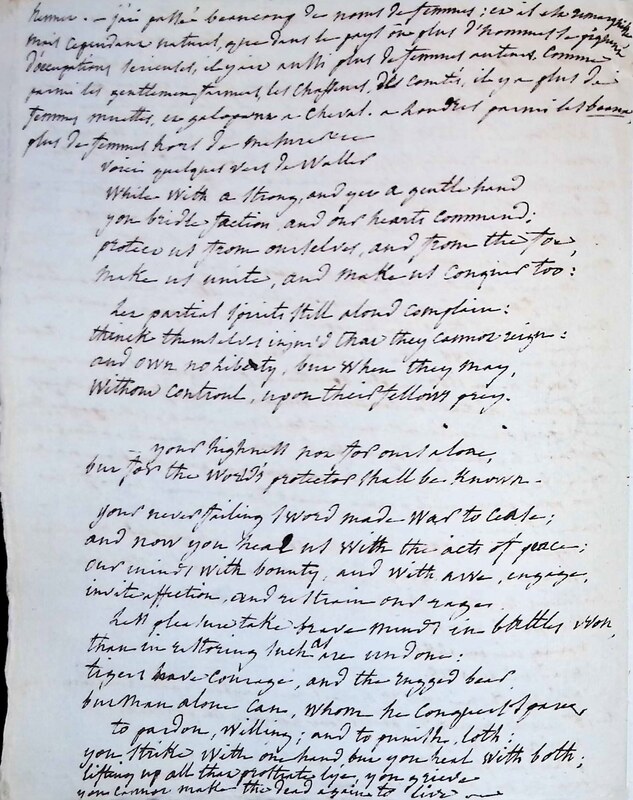 femmes. – j'ai passé beaucoup de noms de femmes; et il est remarquable
mais cependant naturel, que dans le pays où plus d'hommes se piquent
d'occupations serieuses, il y ait aussi plus de femmes auteurs. Comme
parmi les gentlemen farmers, les chasseurs, des Comtés, il y a plus de
femmes muettes, et galopant a cheval. a Londres parmi les beaux,
plus de femmes hors de mesure &c
voici quelques vers de Waller
While with a strong, and yet a gentle hand
you bridle faction, and our hearts command;
protect us from ourselves, and from the foe,
make us unite, and make us conquer too:
her partial spirits still aloud complain:
think themselves injur'd that they cannot reign:
and own no liberty, but when they may,
Without controul, upon their fellows prey.
your highness not for ours alone,
but for the World's protector shall be Known.
your never failing sword made war to cease;
and now you heal us with the acts of peace;
our minds with bounty, and with awe, engage,
invite affection, and restrain our rage.
less pleasure take brave minds in battles won,
than in restoring such as are undone:
tigers have courage, and the rugged bear
but man alone can, whom he conquers, spare,
to pardon, willing; and to punish, loth;
you strike with one hand but you heal with both;
lifting up all that prostrate lye, you grieve
you cannot make the dead again to live